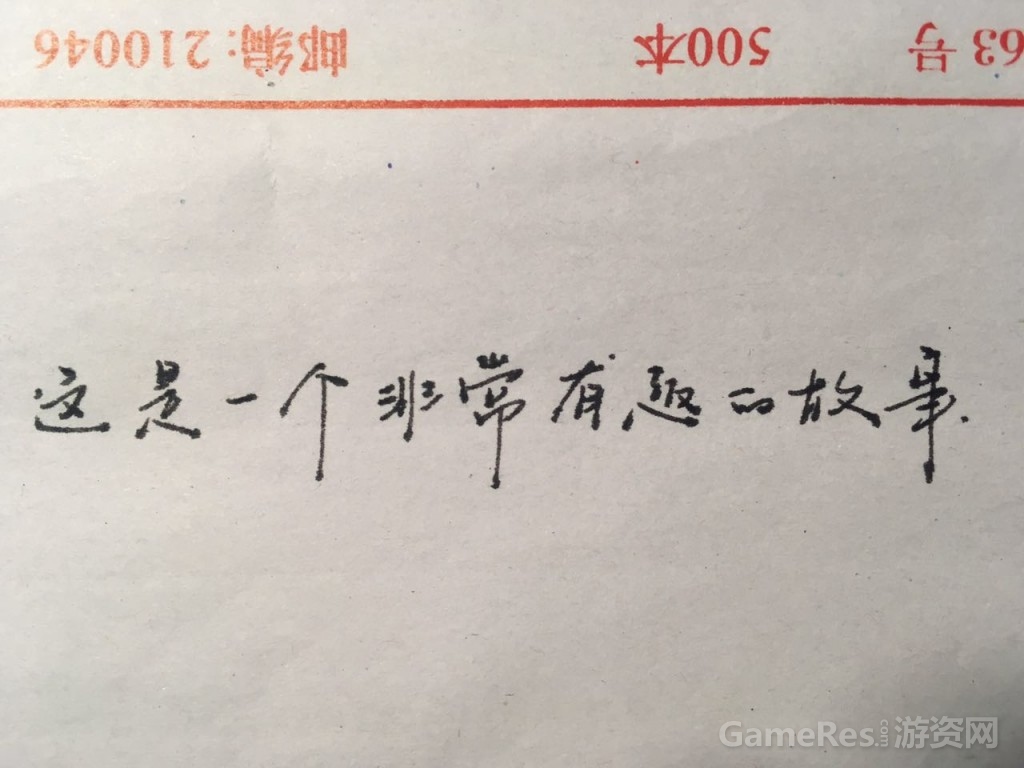 63号 500本 邮编:210046
这是一个非常有趣的故事.
GameRes.com游资网